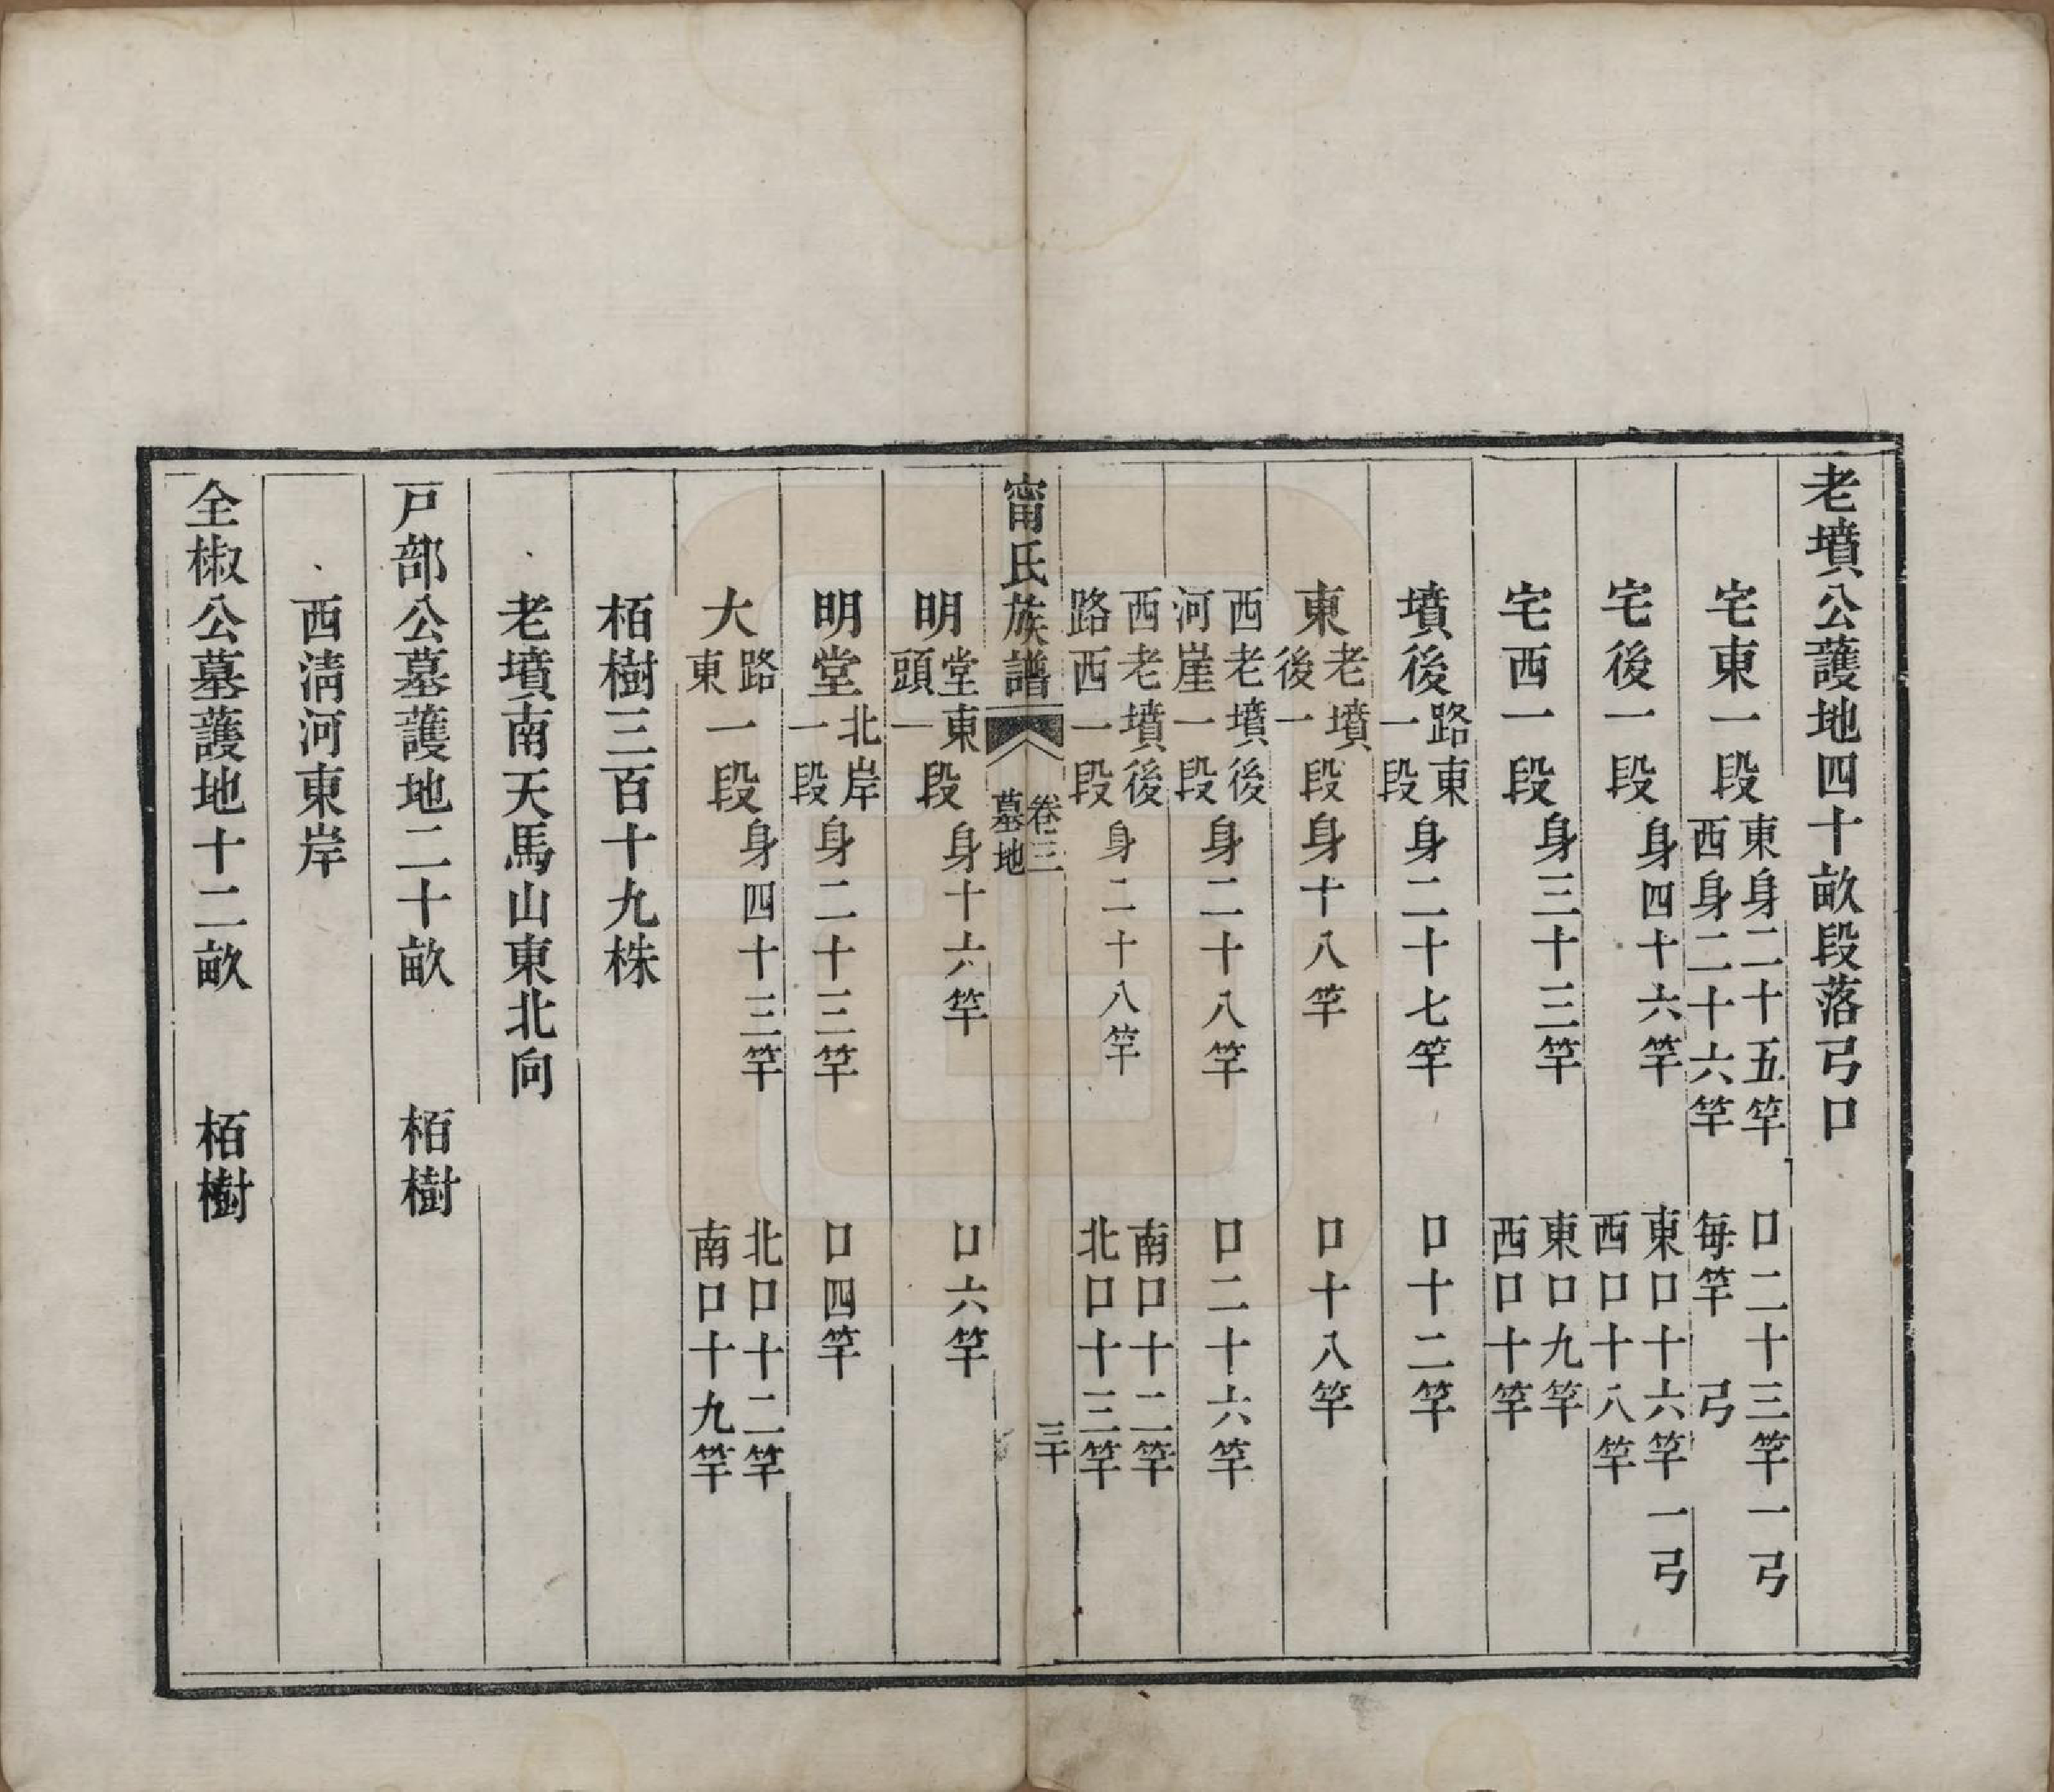 老墳公護地四十畝段落弓口
宅東一段東身二十五竿西身二十六竿 口二十三竿一弓每竿 弓
宅後一段身四十六竿 東口十六竿一弓西口十八竿
宅西一段身三十三竿 東口九竿西口十竿
墳後路東一段身二十七竿 口十二竿
東老墳後一段身十八竿 口十八竿
西老墳後河崖一段身二十八竿 口二十六竿
西老墳後路西一段身二十八竿 南口十二竿北口十三竿
甯氏族譜 卷三 墓地 三十
明堂東頭一段身十六竿 口六竿
明堂北岸一段身二十三竿 口四竿
大路東一段身四十三竿 北口十二竿南口十九竿
栢樹三百十九株
老墳南天馬山東北向
戸部公墓護地二十畝 栢樹
西淸河東岸
全椒公墓護地十二畝 栢樹